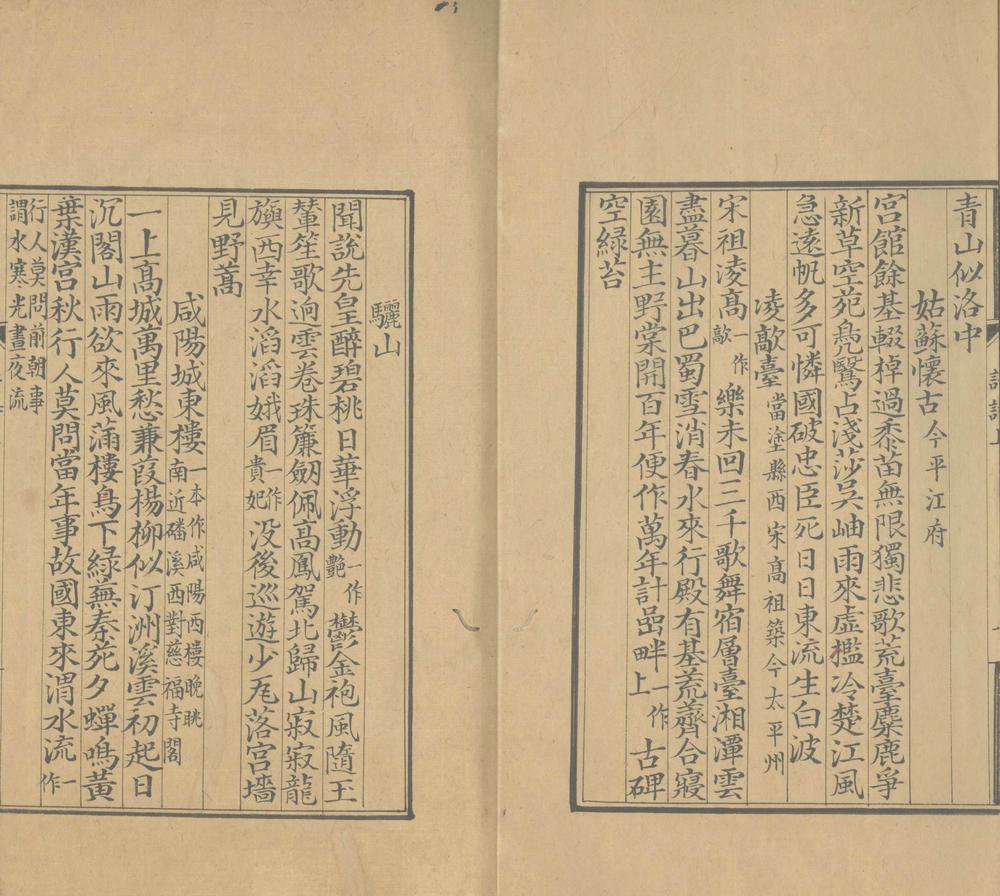 青山似洛中
姑蘇懷古今平江府
宮館餘基輟棹過黍苗無限獨悲歌荒臺麋鹿爭
新草空苑鳧鷖占淺莎吳岫雨來虛檻冷楚江風
急遠帆多可憐國破忠臣死日日東流生白波
凌歊臺當塗縣西宋高祖築今太平州
宋祖淩高一作歊樂未回三千歌舞宿層臺湘潭雲
盡暮山出巴蜀雪消春水來行殿有基荒薺合寢
園無主野棠開百年便作萬年計嵒畔一作上古碑
空綠苔
驪山
聞說先皇醉碧桃日華浮動一作艷鬱金袍風隨玉
輦笙歌逈雲卷珠簾劒佩高鳳駕北歸山寂寂龍
旟西幸水滔滔娥眉一作貴妃沒後巡遊少瓦落宮墻
見野蒿
咸陽城東樓一本作咸陽西樓晚眺南近磻溪西對慈福寺閣
一上高城萬里愁蒹葭楊柳似汀洲溪雲初起日
沉閣山雨欲來風滿樓鳥下綠蕪秦苑夕蟬鳴黃
葉漢宮秋行人莫問當年事故國東來渭水流一作
行人莫問前朝事
謂水寒光晝夜流